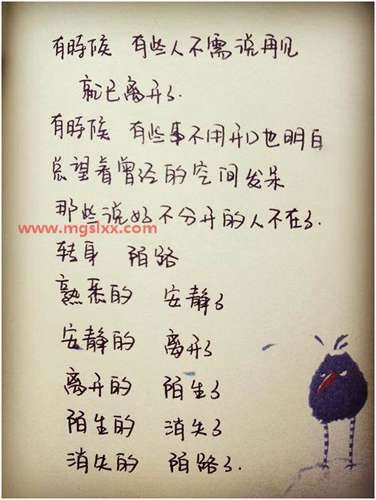 有時候 有些人不需说再见
就已离开了.
有時候 有些事不用开口也明白
总望着曾经的空间发呆
那些说好不分开的人不在了.
www.mgslxx.com
转身 陌路
熟悉的 安静了
安静的 离开了
离开的 陌生了
陌生的 消失了
消失的 陌路了.